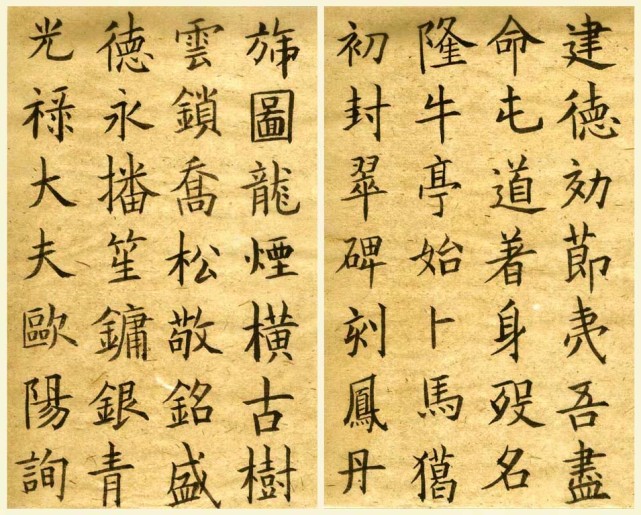 建德効節夷吾盡
命屯道著身殁名
隆牛亭始卜馬獦
初封翠碑刻鳳丹
旆圖龍煙橫古樹
雲鎖喬松敬銘盛
德永播笙鏞銀青
光祿大夫歐陽詢